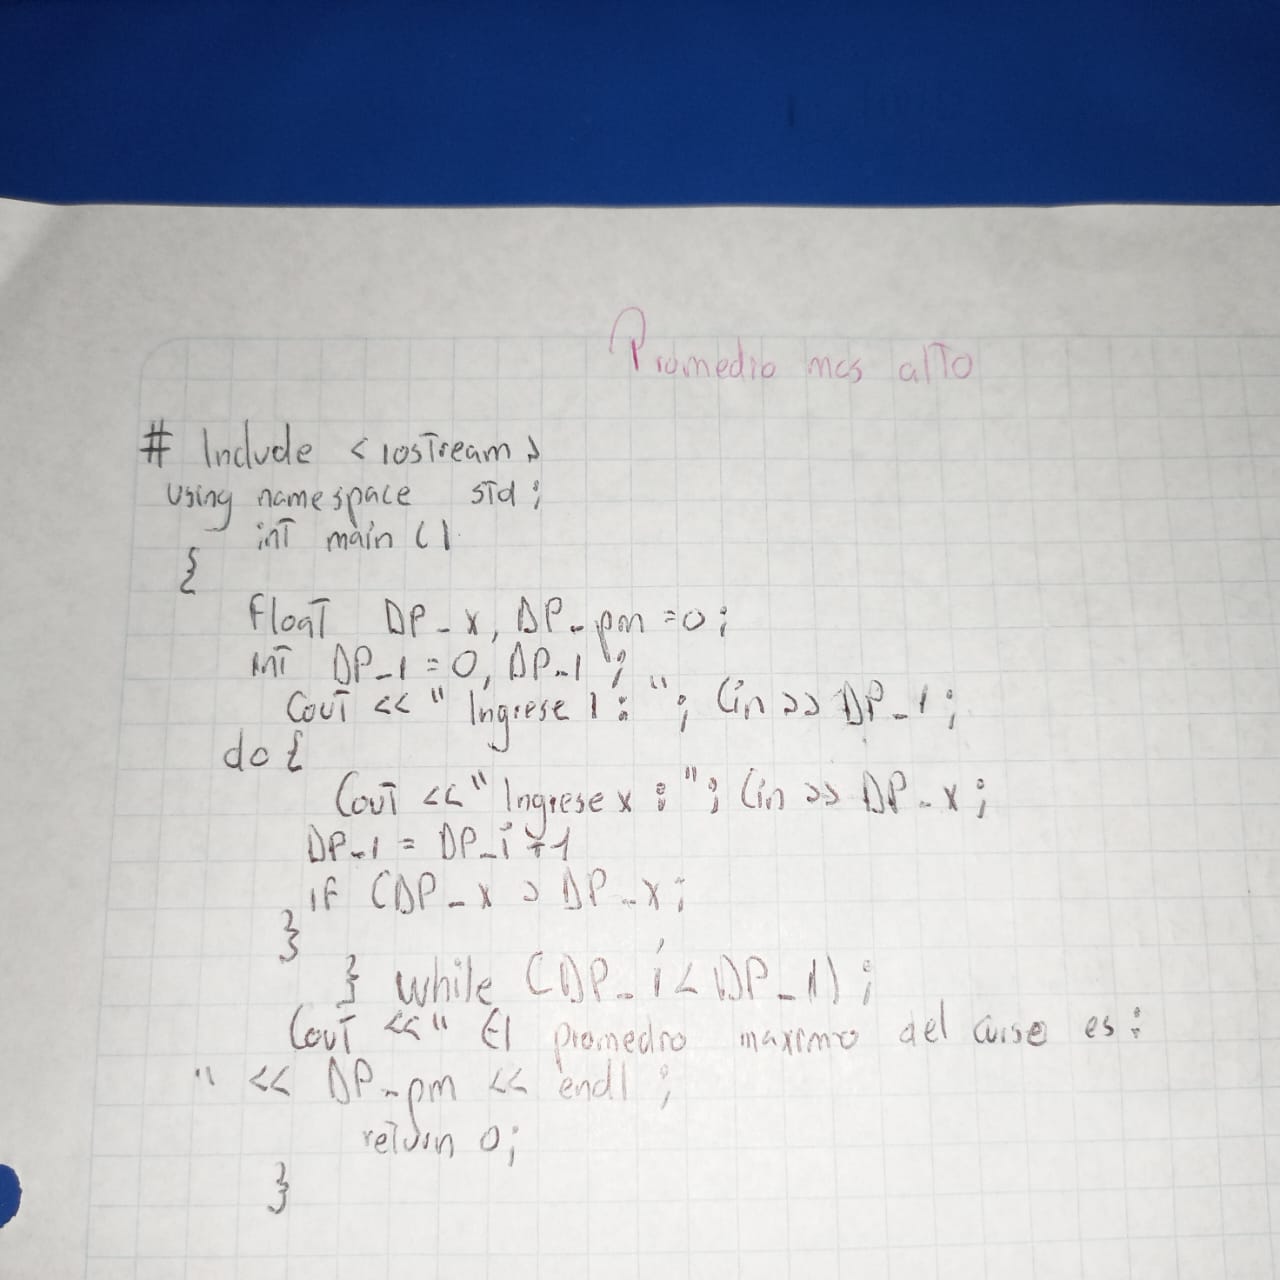 Promedio mas alto
# Include <iostream>
using namespace std;
int main ()
{
float DP_x, DP_pm =0;
int DP_i = 0, DP_1;
Cout << " Ingrese 1 : "; Cin >> DP_1;
do {
Cout << " Ingrese x : "; Cin >> DP_x;
DP_i = DP_i +1
if (DP_x > DP_x;
}
} while (DP_i < DP_1);
Cout << " El promedio maximo del curso es:
" << DP_pm << endl;
return 0;
}